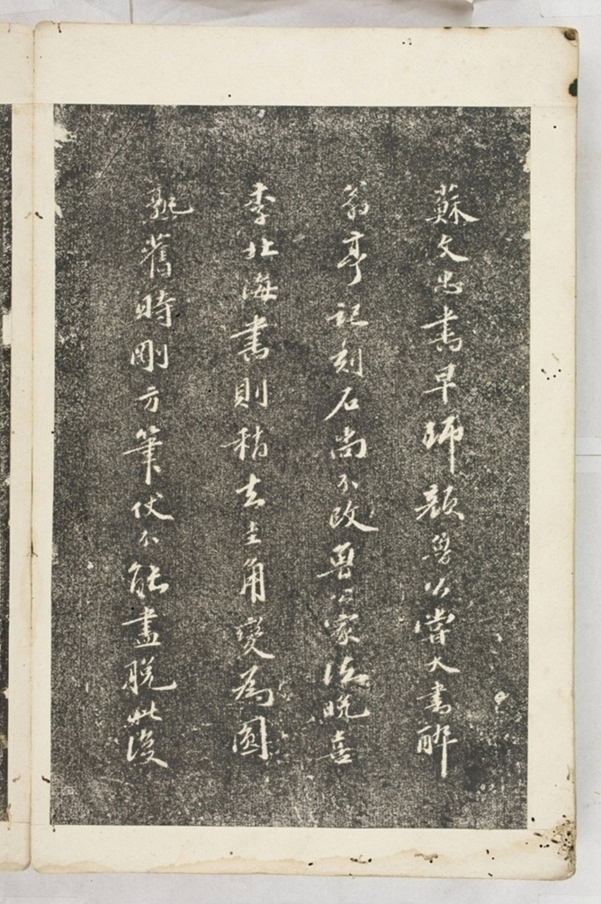 蘇文忠書早師顏魯公嘗大書醉
翁亭記刻石尚不改魯公家法晚喜
李北海書則稍去圭角變為圓
熟舊時剛方筆仗不能盡脫此後